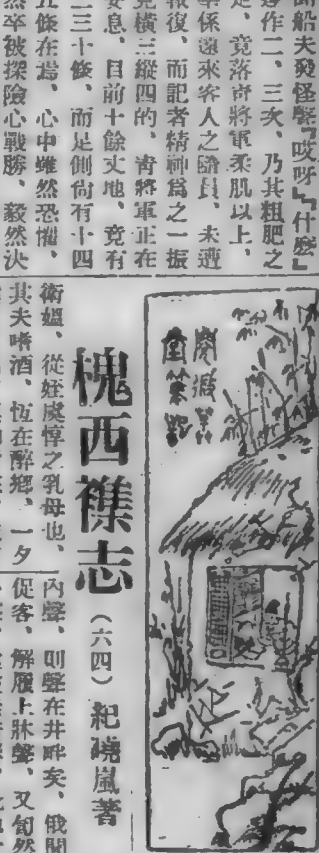 船夫發怪聲『哎呀』『什麽』
作二、三次、乃其粗肥之
足、竟落青將軍柔肌以上、
係遠來客人之諸員、未遭
報復、而記者精神爲之一振
見橫三縱四的、青將軍正在
安息、目前十餘丈地、竟有
二三十條、而足側尙有十四
五條在焉、心中雖然恐懼、
然卒被探險心戰勝、毅然決
閱微草
堂筆記
槐西襍志(六四)紀曉嵐著
衛媼、從姪虞惇之乳母也、
其夫嗜酒、恆在醉鄉、一夕
內聲、則聲在井畔矣、俄聞
促客、解履上牀聲、又訇然